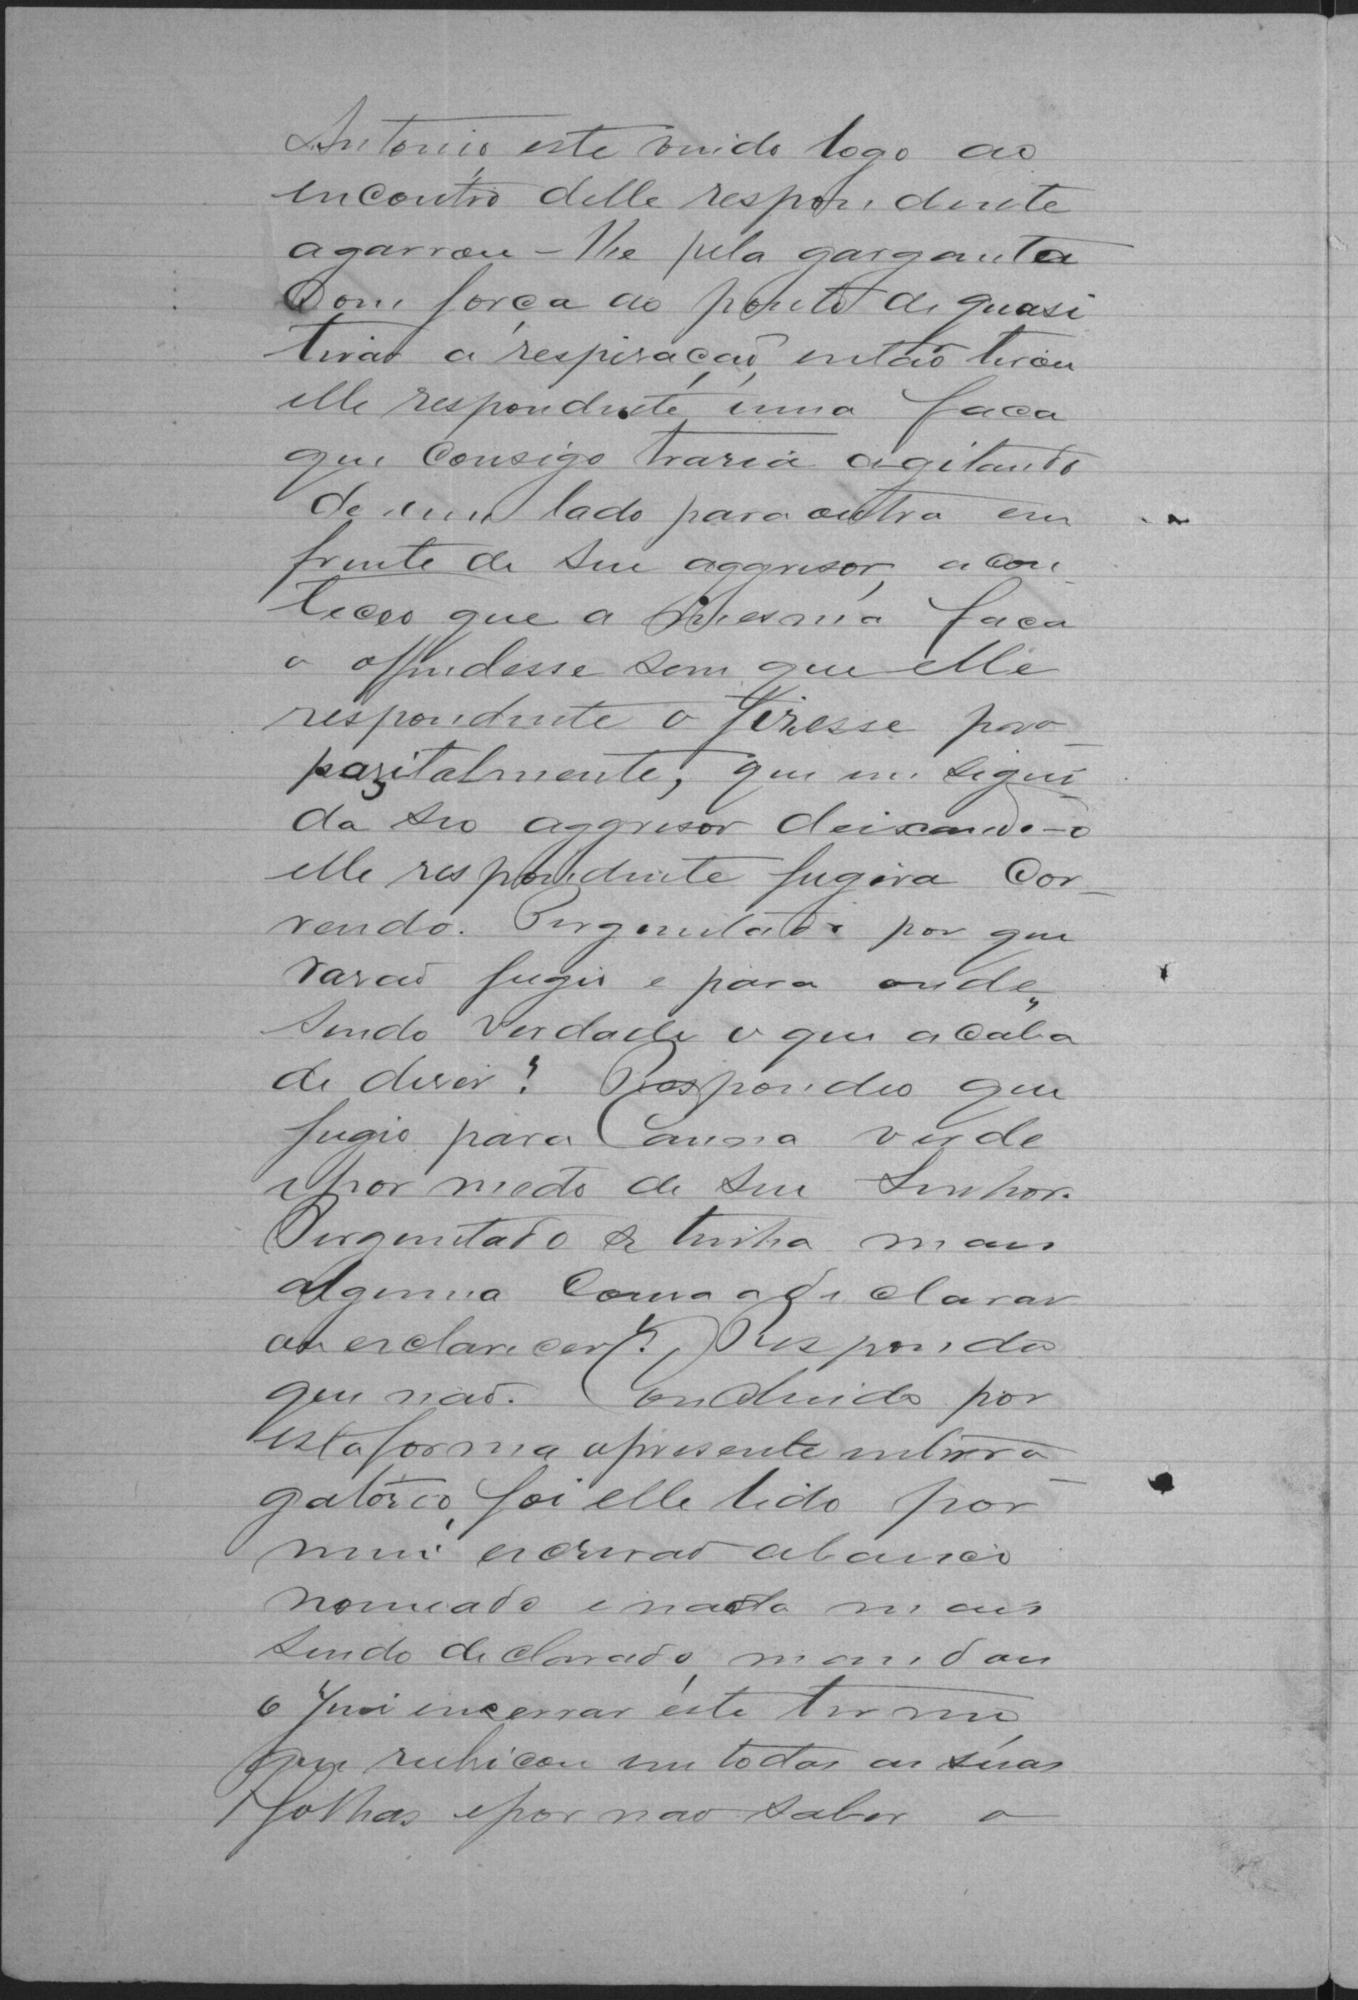 Antonio, este vindo logo ao
encontro delle respondente
agarrou-lhe pela garganta
Com força ao ponto de quasi
tirar a respiração, então tirou
elle respondente, uma faca
que consigo trazia agitando
de um lado para outro em
frente de seu aggresor, acon-
teceo que a mesma faca
o offendesse sem que elle
respondente o fizesse pro-
pozitalmente, que em segui
da seo aggresor deixando-o
elle respondente fugira Cor-
rendo. Perguntado por que
razaõ fugio e para onde,
sendo verdade o que acaba
de dizer? Respondeo que
fugio para Canna verde
e por medo de seu Senhor.
Perguntado se tinha mais
alguma Cousa a declarar
ou esclarecer? Respondeo
que naõ. Concluido por
esta forma o presente interro-
gatorio, foi elle lido por
mim escrivaõ abaixo
nomeado e nada mais
sendo declarado, mandou
o Juiz encerrar este termo
que rubricou em todas as suas
folhas e por naõ saber o